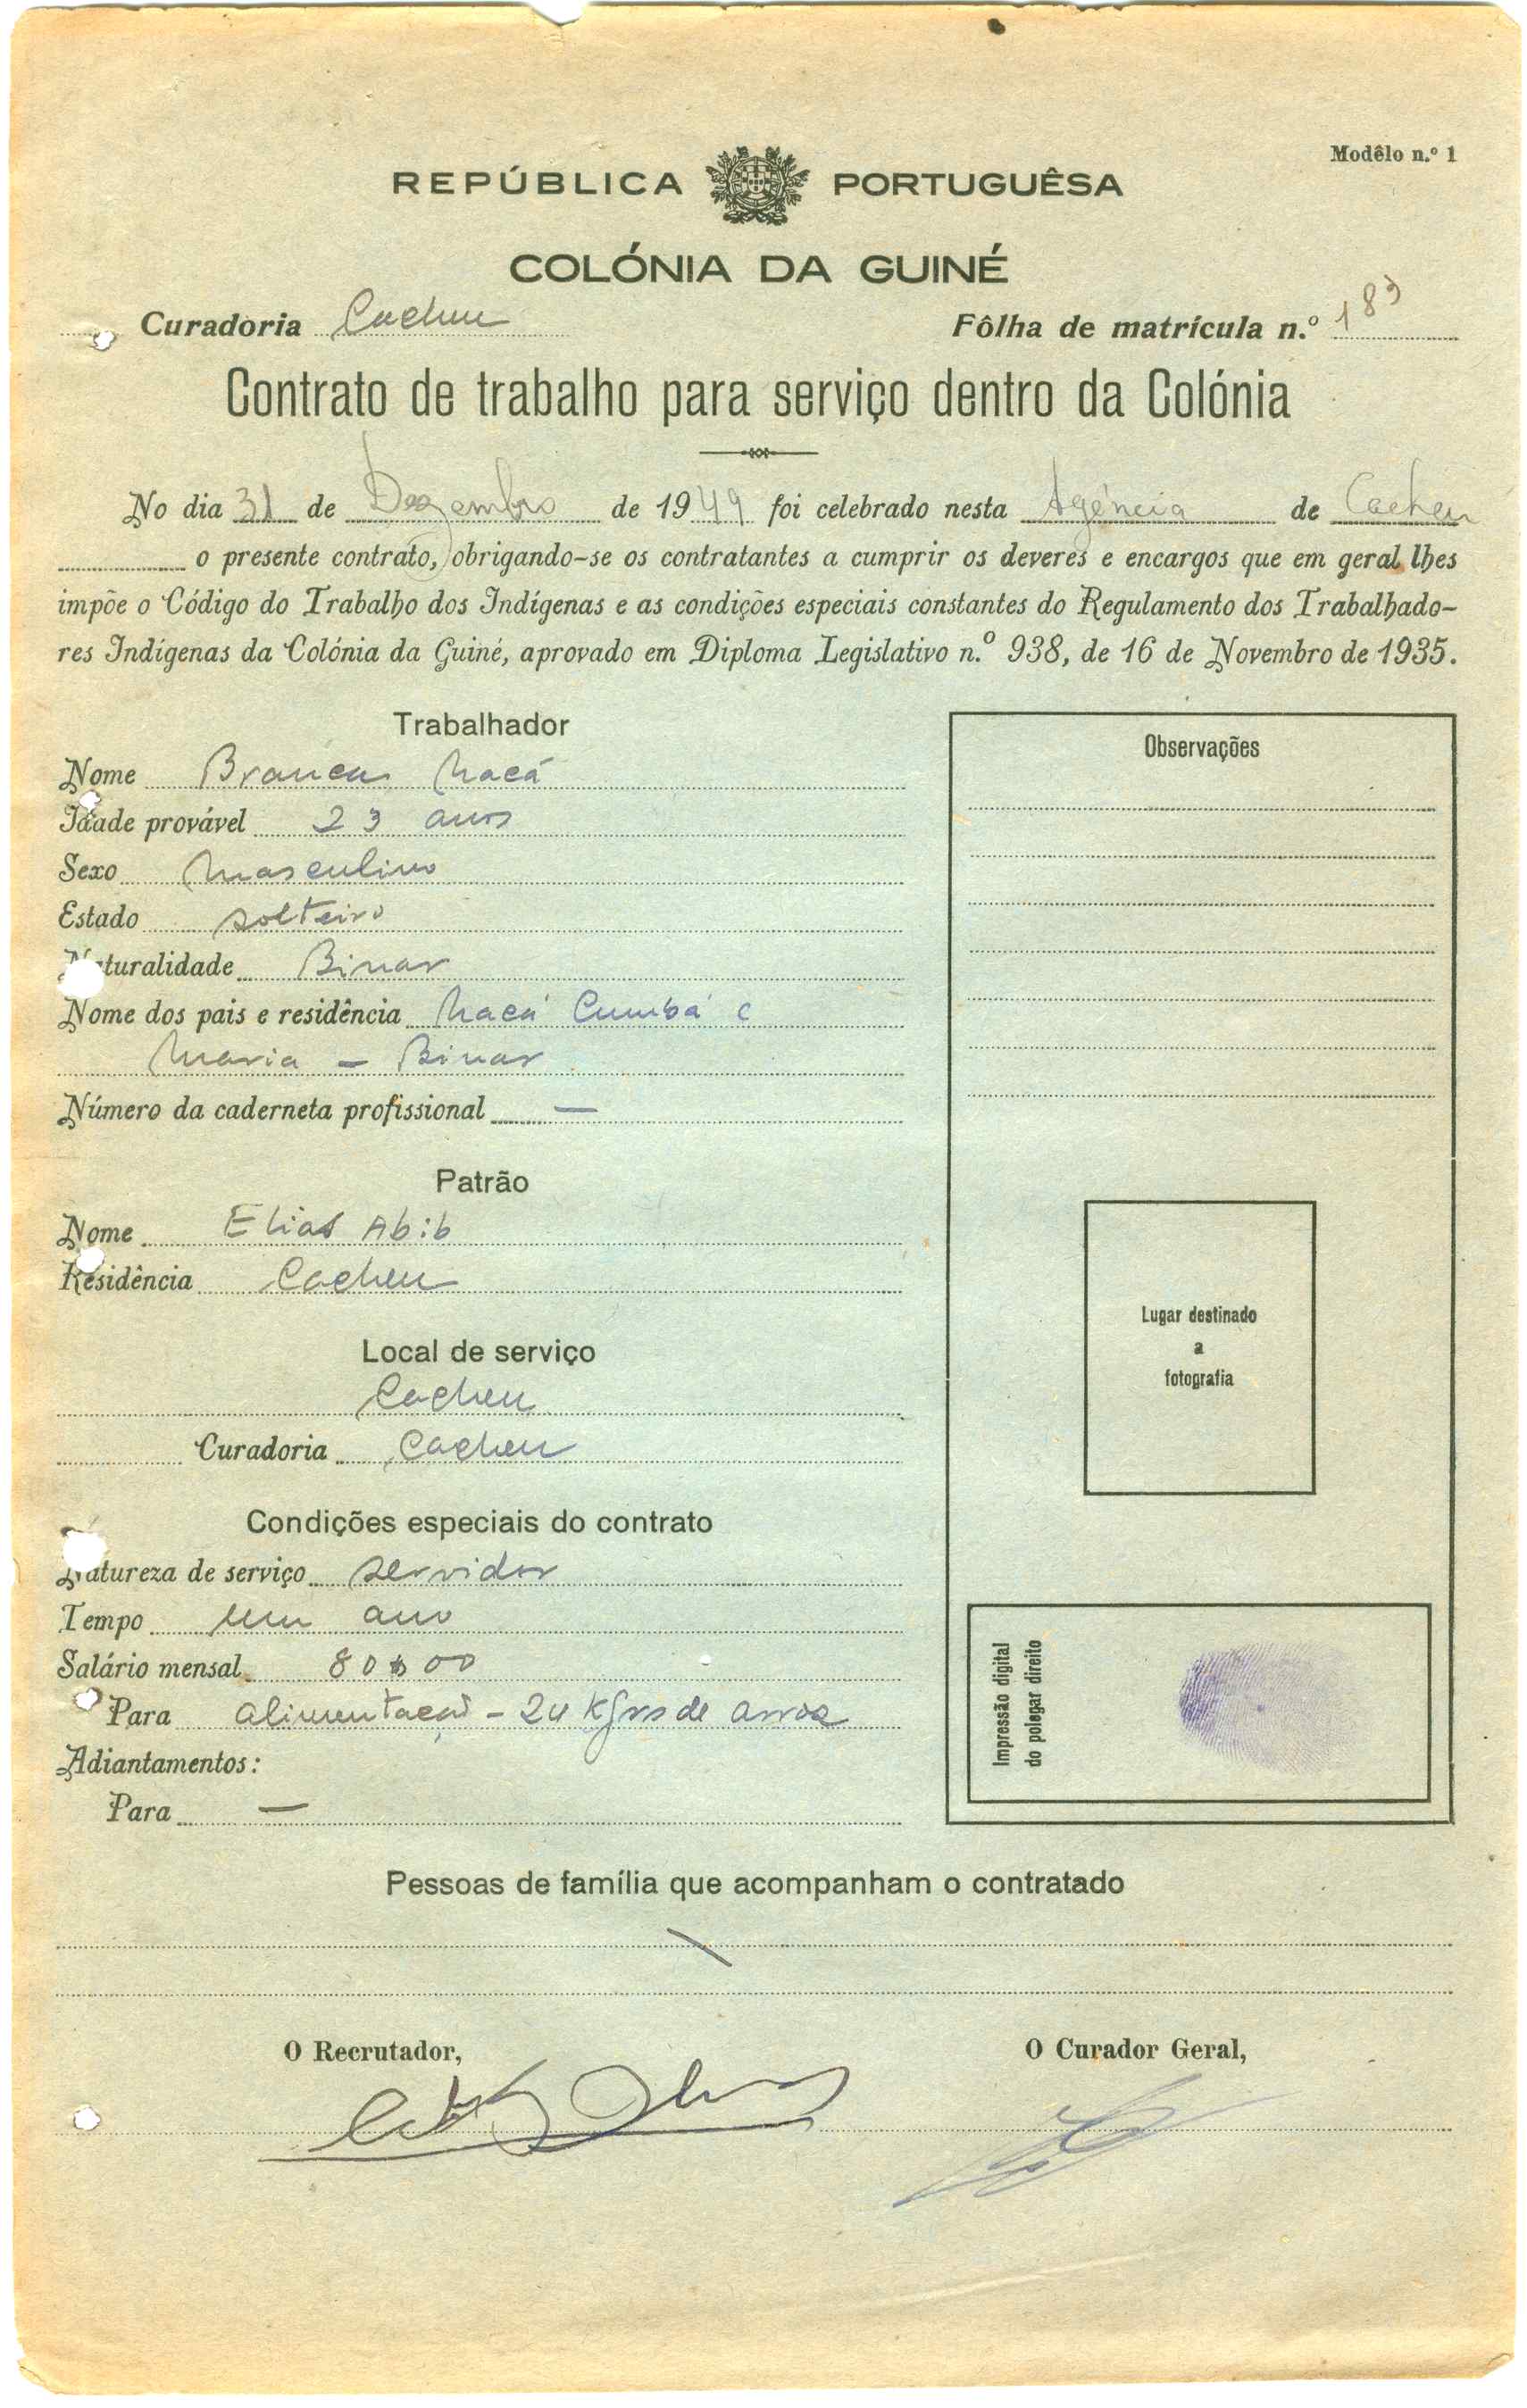 Modêlo n.º 1
REPÚBLICA PORTUGUÊSA
COLÓNIA DA GUINÉ
Curadoria Cacheu Fôlha de matrícula n.º 183
Contrato de trabalho para serviço dentro da Colónia
No dia 31 de Dezembro de 1949 foi celebrado nesta Agência de Cacheu
o presente contrato, obrigando-se os contratantes a cumprir os deveres e encargos que em geral lhes
impõe o Código do Trabalho dos Indígenas e as condições especiais constantes do Regulamento dos Trabalhado-
res Indígenas da Colónia da Guiné, aprovado em Diploma Legislativo n.º 938, de 16 de Novembro de 1935.
Trabalhador
Nome Branca Macá
Idade provável 23 anos
Sexo Masculino
Estado solteiro
Naturalidade Binar
Nome dos pais e residência Macá Cumbá e
Maria - Binar
Número da caderneta profissional —
Patrão
Nome Elias Abib
Residência Cacheu
Local de serviço
Cacheu
Curadoria Cacheu
Condições especiais do contrato
Natureza de serviço servidor
Tempo um ano
Salário mensal 80$00
Para alimentação - 24 Kgrs de arroz
Adiantamentos:
Para —
Observações
Lugar destinado
a
fotografia
Impressão digital
do polegar direito
Pessoas de família que acompanham o contratado
O Recrutador, O Curador Geral,